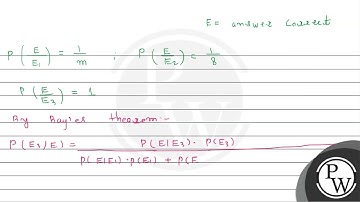 E = answer correct
P(E/E1) = 1/m ; P(E/E2) = 1/8
P(E/E3) = 1
By Bayes theorem :-
P(E3/E) = P(E|E3) · P(E3)
P(E|E1) · P(E1) + P(E
PW
PW